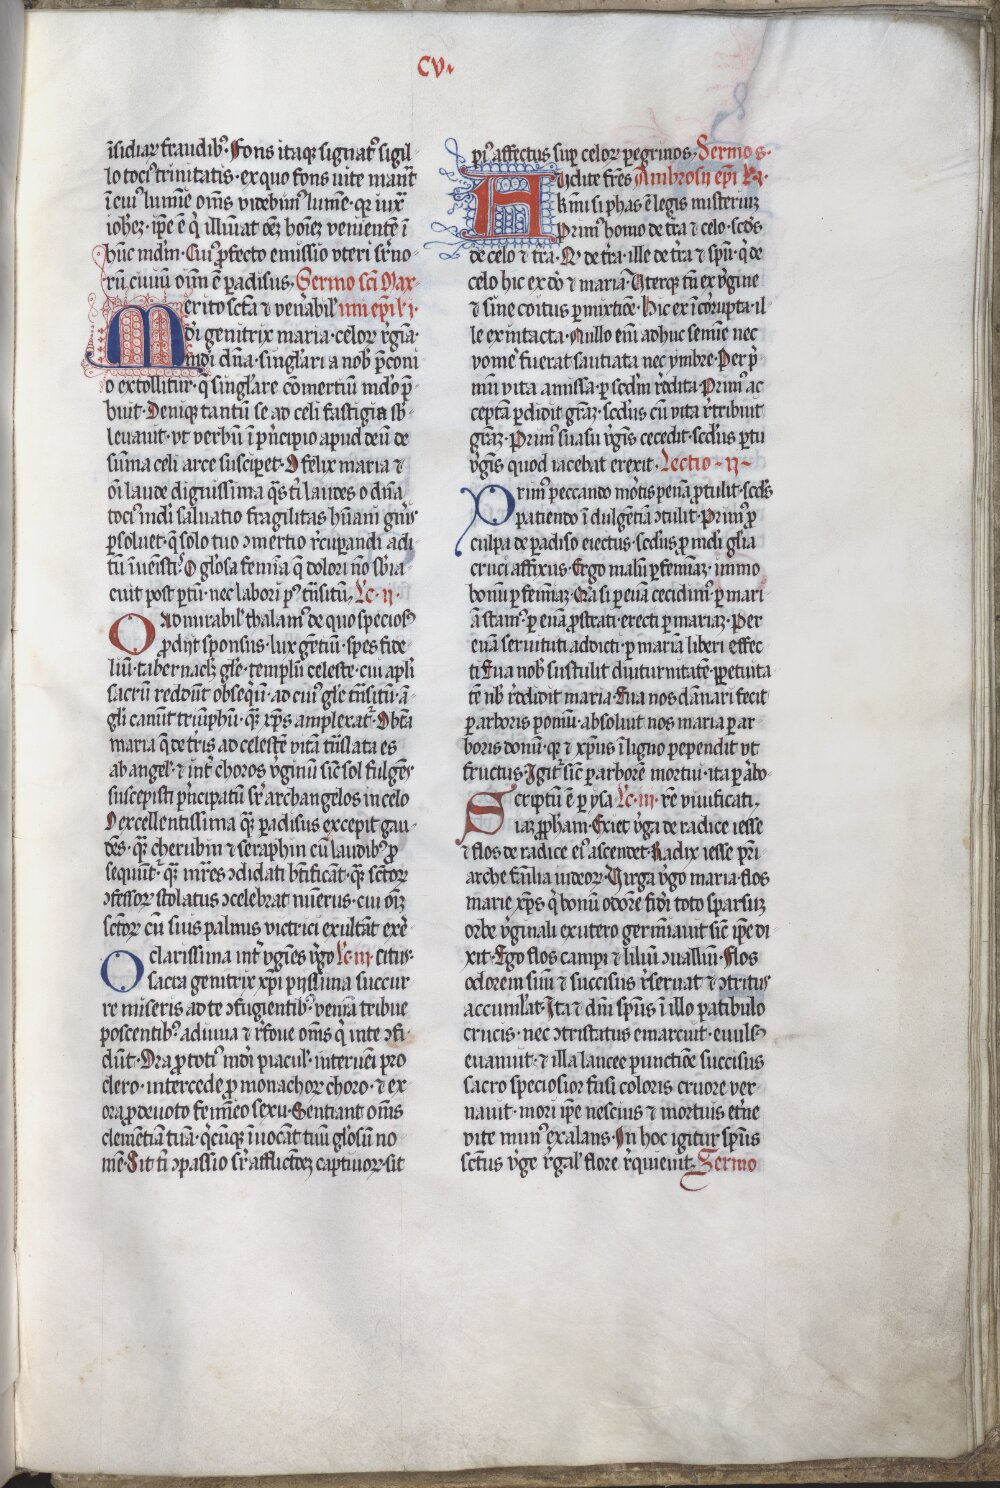 CV.
īsidiaꝝ fraudibꝰ. Fons itaqꝫ signatꝰ sigil
lo tociꝰ trinitatis. ex quo fons uite manat
ī cuiꝰ lumīe om̄s videbimꝰ lumē. qꝛ iux̄
iohēꝫ. ip̄e ē q̇ illūīat oēꝫ hoīeꝫ veniente ī
hūc mūdm̄. Cuiꝰ ꝓfecto emissio vteri sr̄no-
rū ciuiū oīm̄ ē ꝑadisus. Sermo scī Max-
Merito scīta ⁊ ven̄abilˢ imi epī l'i.
mūdi genitrix maria. celoꝝ rēgia
mūdi dn̄a. singlari a nob̄ p̄coni
o extollitur. q̄ singlare cōmertiū mūdo p̄-
buit. Deniqꝫ tantū se ad celi fastigia sb̄-
leuauit. vt verbū ī pͥncipio apud deū de
sūma celi arce susciꝑet. O felix maria ⁊
oī laude dignissima q̄s tͥ laudes o dn̄a
tociꝰ mūdi saluatio fragilitas hūani gn̄is
ꝑsoluet. q̄ solo tuo ꝯmertio r̄cuꝑandi adi
tū īuenisti. O glōsa femīa q̄ dolori nō sb̄ia-
cuit post ꝑtū. nec labori pꝰ trāsitū. Lc. ij.
O admirabilˢ thalamꝰ de quo speciosꝰ
ꝓdijt sponsus. lux gētiū. spes fide
liū. tabernaclm̄ gle. templū celeste. cui apl̄i
sacrū reddūt obseqm̄. ad cuiꝰ gle trāsitū. ā-
gl̄i canūt triūphū. quā xp̄s amplexatꝰ. Obtā
maria q̄ de tr̄is ad celestē vitā trāslata es
ab angelˢ. ⁊ intͣ choros v̓ginū sic̄ sol fulgēs
suscepisti pͥncipatū sꝑ archangelos in celo
O excellentissima quā ꝑadisus excepit gau
dēs. quā cherubin ⁊ seraphin cū laudibꝰ ꝓ
sequūtꝰ. quā mr̄es ꝯdidati bt̄ificāt. quā sctoꝝ
ꝯfessoꝝ stolatus ꝯcelebrat nūerus. cui oīꝫ
sctoꝝ cū suis palmis victrici exultāt exer
O clarissima intͣ v̓gīes v̓go Lc. iij. citus.
sacra genitrix xpī pijssima succur
re miseris ad te ꝯfugientibꝰ. veniā tribue
poscentibꝰ. adiuua ⁊ r̄foue om̄s q̇ in te ꝯfi-
dūt. Ora ꝓ totiꝰ mūdi piaculˢ. interueni pro
clero. intercede ꝓ monachoꝝ choro. ⁊ ex
ora ꝓ deuoto femīeo sexu. Sentiant om̄s
clemētiā tuā. q̇cūqꝫ īuocāt tuū glōsū no
mē. Sit tͥ ꝯpassio sꝑ afflictōeꝫ captiuoꝝ. sit
piꝰ affectus suꝑ celoꝝ ꝑegrinos. Sermo s.
Audite frēs Ambrosij epī k̄-
k̄mi si phas ē legis misteriuꝫ
Primꝰ homo de tr̄a ⁊ celo. scdꝰs
de celo ⁊ tr̄a. Nā de tr̄a. ille de tr̄a ⁊ spū. q̇ de
celo hic ex dō ⁊ maria. Uterqꝫ tn̄ ex v̓gine
⁊ sine coitus ꝑmixtiōe. Hic ex īcorupta. il-
le ex intacta. Nullo eīm adhuc semīe nec
vomeͬ fuerat sautiata nec ymbre. Per pͥ
mū vita amissa. ꝑ scdm̄ r̄ddita. Primꝰ ac
ceptā ꝑdidit gr̄aꝫ. scdꝰs cū vita r̄tribuit
gr̄aꝫ. Primꝰ suasu v̓gīs cecedit. scdꝰs ꝑtu
v̓gīs quod iacebat erexit. Lectio. ij.
Primꝰ peccando mōtis penā ꝓtulit. scdꝰs
patiendo īdulgētiā ꝯtulit. Primꝰ ꝓ
culpa de ꝑadiso eiectus. scdꝰs ꝓ mūdi gl̄ia
cruci affixus. Ergo malū ꝑ femīaꝫ. immo
bonū ꝑ femīaꝫ. Qꝛ si ꝑ euā cecidimꝰ. ꝑ mari
ā stamꝰ. ꝑ euā ꝓstrati. erecti ꝑ mariaꝫ. Per
euā seruituti addicti. ꝑ mariā liberi effec
ti. Eua nob̄ sustulit diuturnitatē. ꝑpetuita
tē nb̄ r̄ddidit maria. Eua nos dānari fecit
ꝑ arboris pomū. absoluit nos maria ꝑ ar
boris donū. qꝛ ⁊ xp̄us ī ligno pependit vt
fructus. Igitꝰ sic̄ ꝑ arborē mortui. ita ꝑ arbo-
Scriptū ē ꝑ ysa Lc. iij. rē viuificati.
iaꝫ ꝓpham. Exiet v̓ga de radice iesse
⁊ flos de radice eiꝰ ascendet. Radix iesse pr̄i
arche familia iudeoꝝ. Uirga v̓go maria. flos
marie xp̄s q̇ bonū odorē fidei toto sparsuꝫ
orbe v̓ginali ex utero germīauit sic̄ ip̄e di
xit. Ego flos campi ⁊ liliū ꝯualliū. Flos
odorem suū ⁊ succisus r̄seruat ⁊ ꝯtritus
accumlat. Ita ⁊ dn̄i spūs ī illo patibulo
crucis. nec ꝯtristatus emarcuit. euulsꝰ
euanuit. ⁊ illa lancee punctiōe succisus
sacro speciosior fusi coloris cruore ver-
nauit. mori ip̄e nescius ⁊ mortuis et̄ne
vite munꝰ exalans. In hoc igitur spūs
sctūs v̓ge r̄galˢ flore r̄quieuit. Sermo